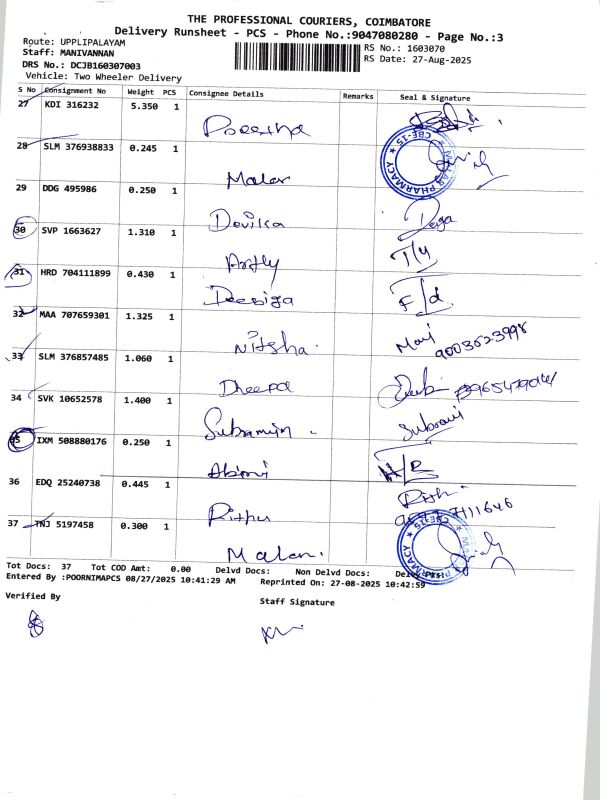 THE PROFESSIONAL COURIERS, COIMBATORE
Delivery Runsheet - PCS - Phone No.:9047080280 - Page No.:3
Route: UPPLIPALAYAM
RS No.: 1603070
Staff: MANIVANNAN
RS Date: 27-Aug-2025
DRS No.: DCJB160307003
Vehicle: Two Wheeler Delivery
S No Consignment No Weight PCS Consignee Details Remarks Seal & Signature
27 KDI 316232 5.350 1
28 SLM 376938833 0.245 1 Malar
CBE-15 MALAR PHARMACY
29 DDG 495986 0.250 1 Devika
30 SVP 1663627 1.310 1
31 HRD 704111899 0.430 1 Deesiga F/d
32 MAA 707659301 1.325 1 Nitsha
33 SLM 376857485 1.060 1 Dheepa
34 SVK 10652578 1.400 1
35 IXM 508880176 0.250 1 Abirni H/R
36 EDQ 25240738 0.445 1 Rithu
37 TNJ 5197458 0.300 1 Malar.
CBE-15 MALAR PHARMACY
Tot Docs: 37 Tot COD Amt: 0.00 Delvd Docs: Non Delvd Docs:
Entered By :POORNIMAPCS 08/27/2025 10:41:29 AM Reprinted On: 27-08-2025 10:42:59
Verified By
Staff Signature